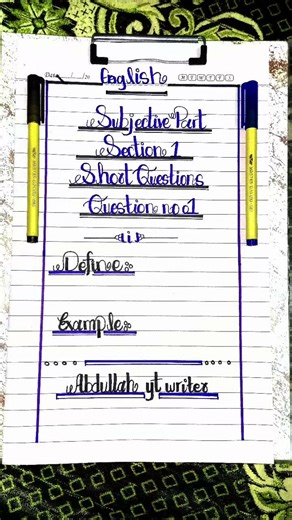 Date
English
Subjective Part
Section 1
Short Questions
Question no 01
i
Define:
Example:
Abdullah yt writer